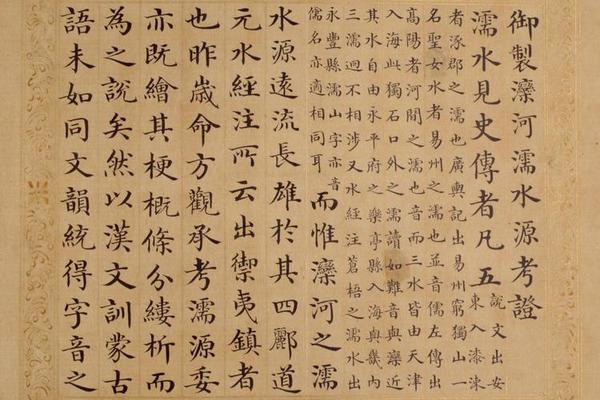 御製灤河濡水源考證
濡水見史傳者凡五說文出安
東入漆涑
者涿郡之濡也廣輿記出易州窮獨山一
名聖女水者易州之濡也並音儒左傳出
高陽者河間之濡也音而三水皆由天津
入海此獨石口外之濡讀如難音與灤近
其水自由永平府之樂亭縣入海與畿內
三濡迥不相涉又水經注蒼梧之濡水出
永豐縣濡山字亦音
儒名亦適相同耳而惟灤河之濡
水源遠流長雄於其四酈道
元水經注所云出禦夷鎮者
也昨歲命方觀承考濡源委
亦既繪其梗概條分縷析而
為之說矣然以漢文訓蒙古
語未如同文韻統得字音之